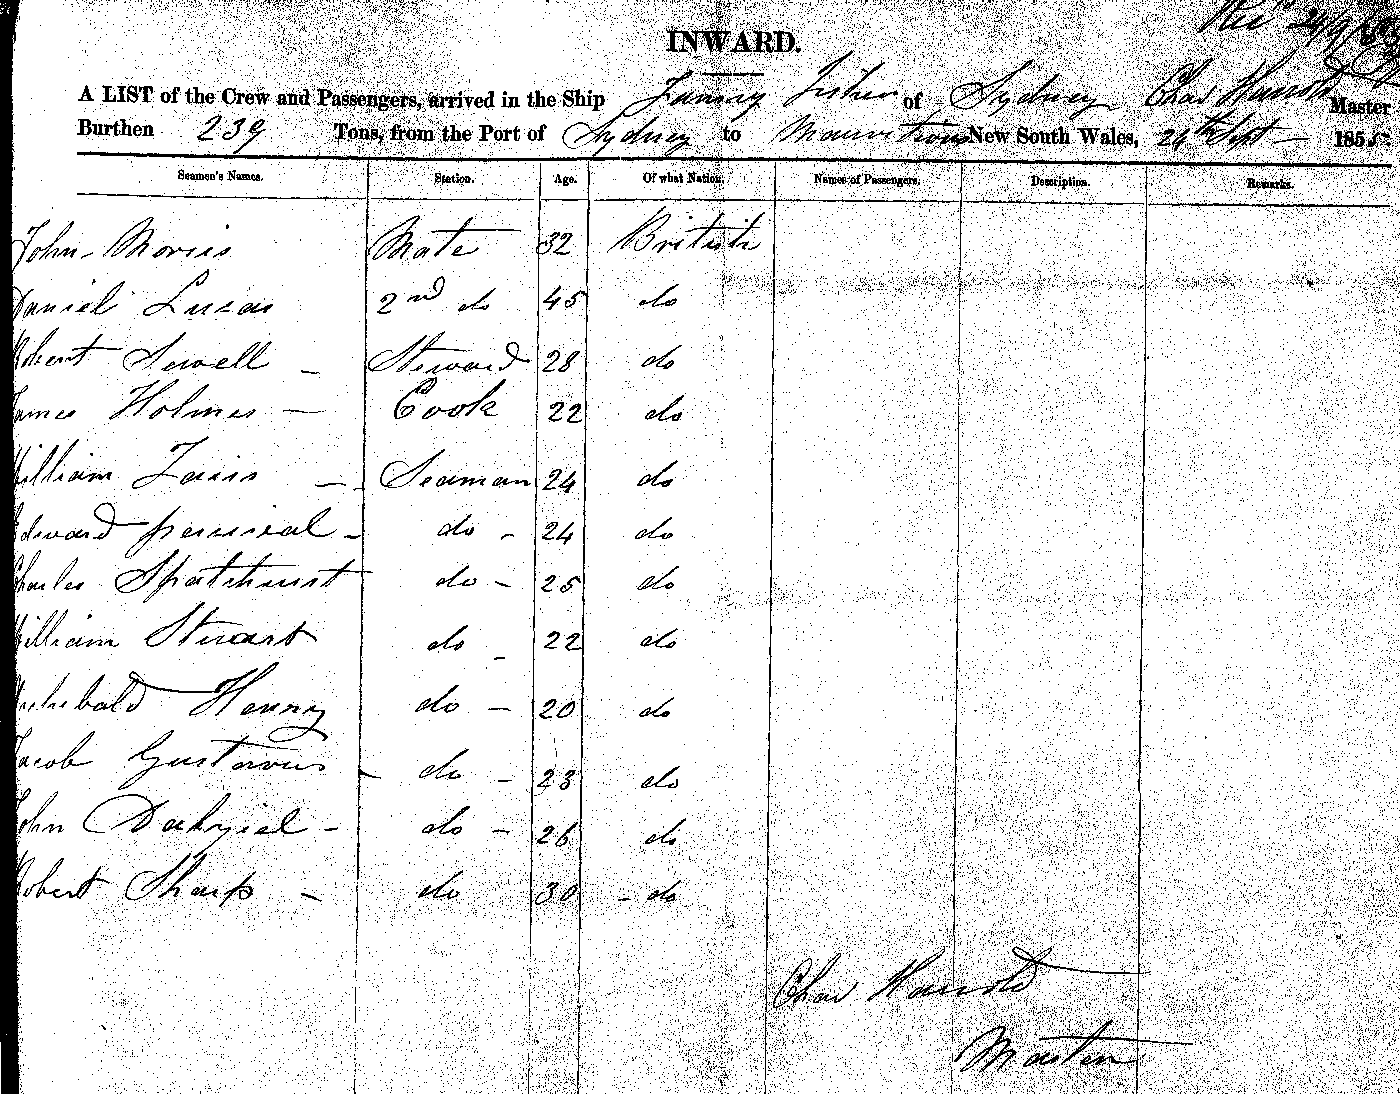 INWARD.
A LIST of the Crew and Passengers, arrived in the Ship Fanney Fisher of Sydney Chas Harrold Master
Burthen 239 Tons, from the Port of Sydney to New South Wales, 24th Sept 185
Seamen's Names. Station. Age. Of what Nation. Names of Passengers. Description. Remarks.
John Morris Mate 32 British
Daniel Lucas 2nd do 45 do
Robert Sewell Steward 28 do
James Holmes Cook 22 do
William Seaman 24 do
Edward percival do 24 do
Charles Spatchurst do 25 do
William Stuart do 22 do
Archebald Henny do 20 do
Jacob Gustavus do 23 do
John do 26 do
Robert Sharp do 30 do
Chas Harrold
Master